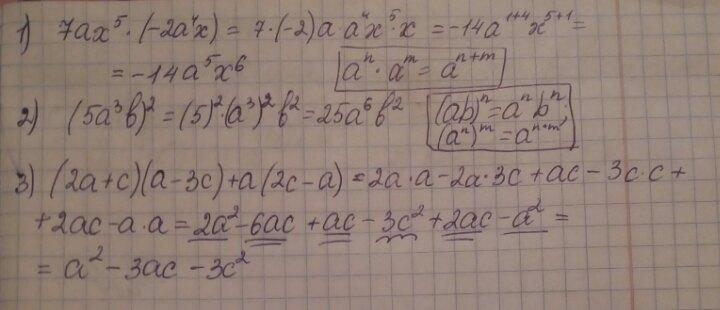 1) 7ax⁵·(-2a⁴x) = 7·(-2)a·a⁴x⁵·x = -14a¹⁺⁴x⁵⁺¹=
= -14a⁵x⁶ aⁿ·aᵐ = aⁿ⁺ᵐ
2) (5a³b)² = (5)²·(a³)²b² = 25a⁶b² (ab)ⁿ = aⁿbⁿ;
(aⁿ)ᵐ = aⁿ·ᵐ
3) (2a+c)(a-3c)+a(2c-a) = 2a·a-2a·3c+ac-3c·c+
+2ac-a·a = 2a²-6ac+ac-3c²+2ac-a² =
= a²-3ac-3c²